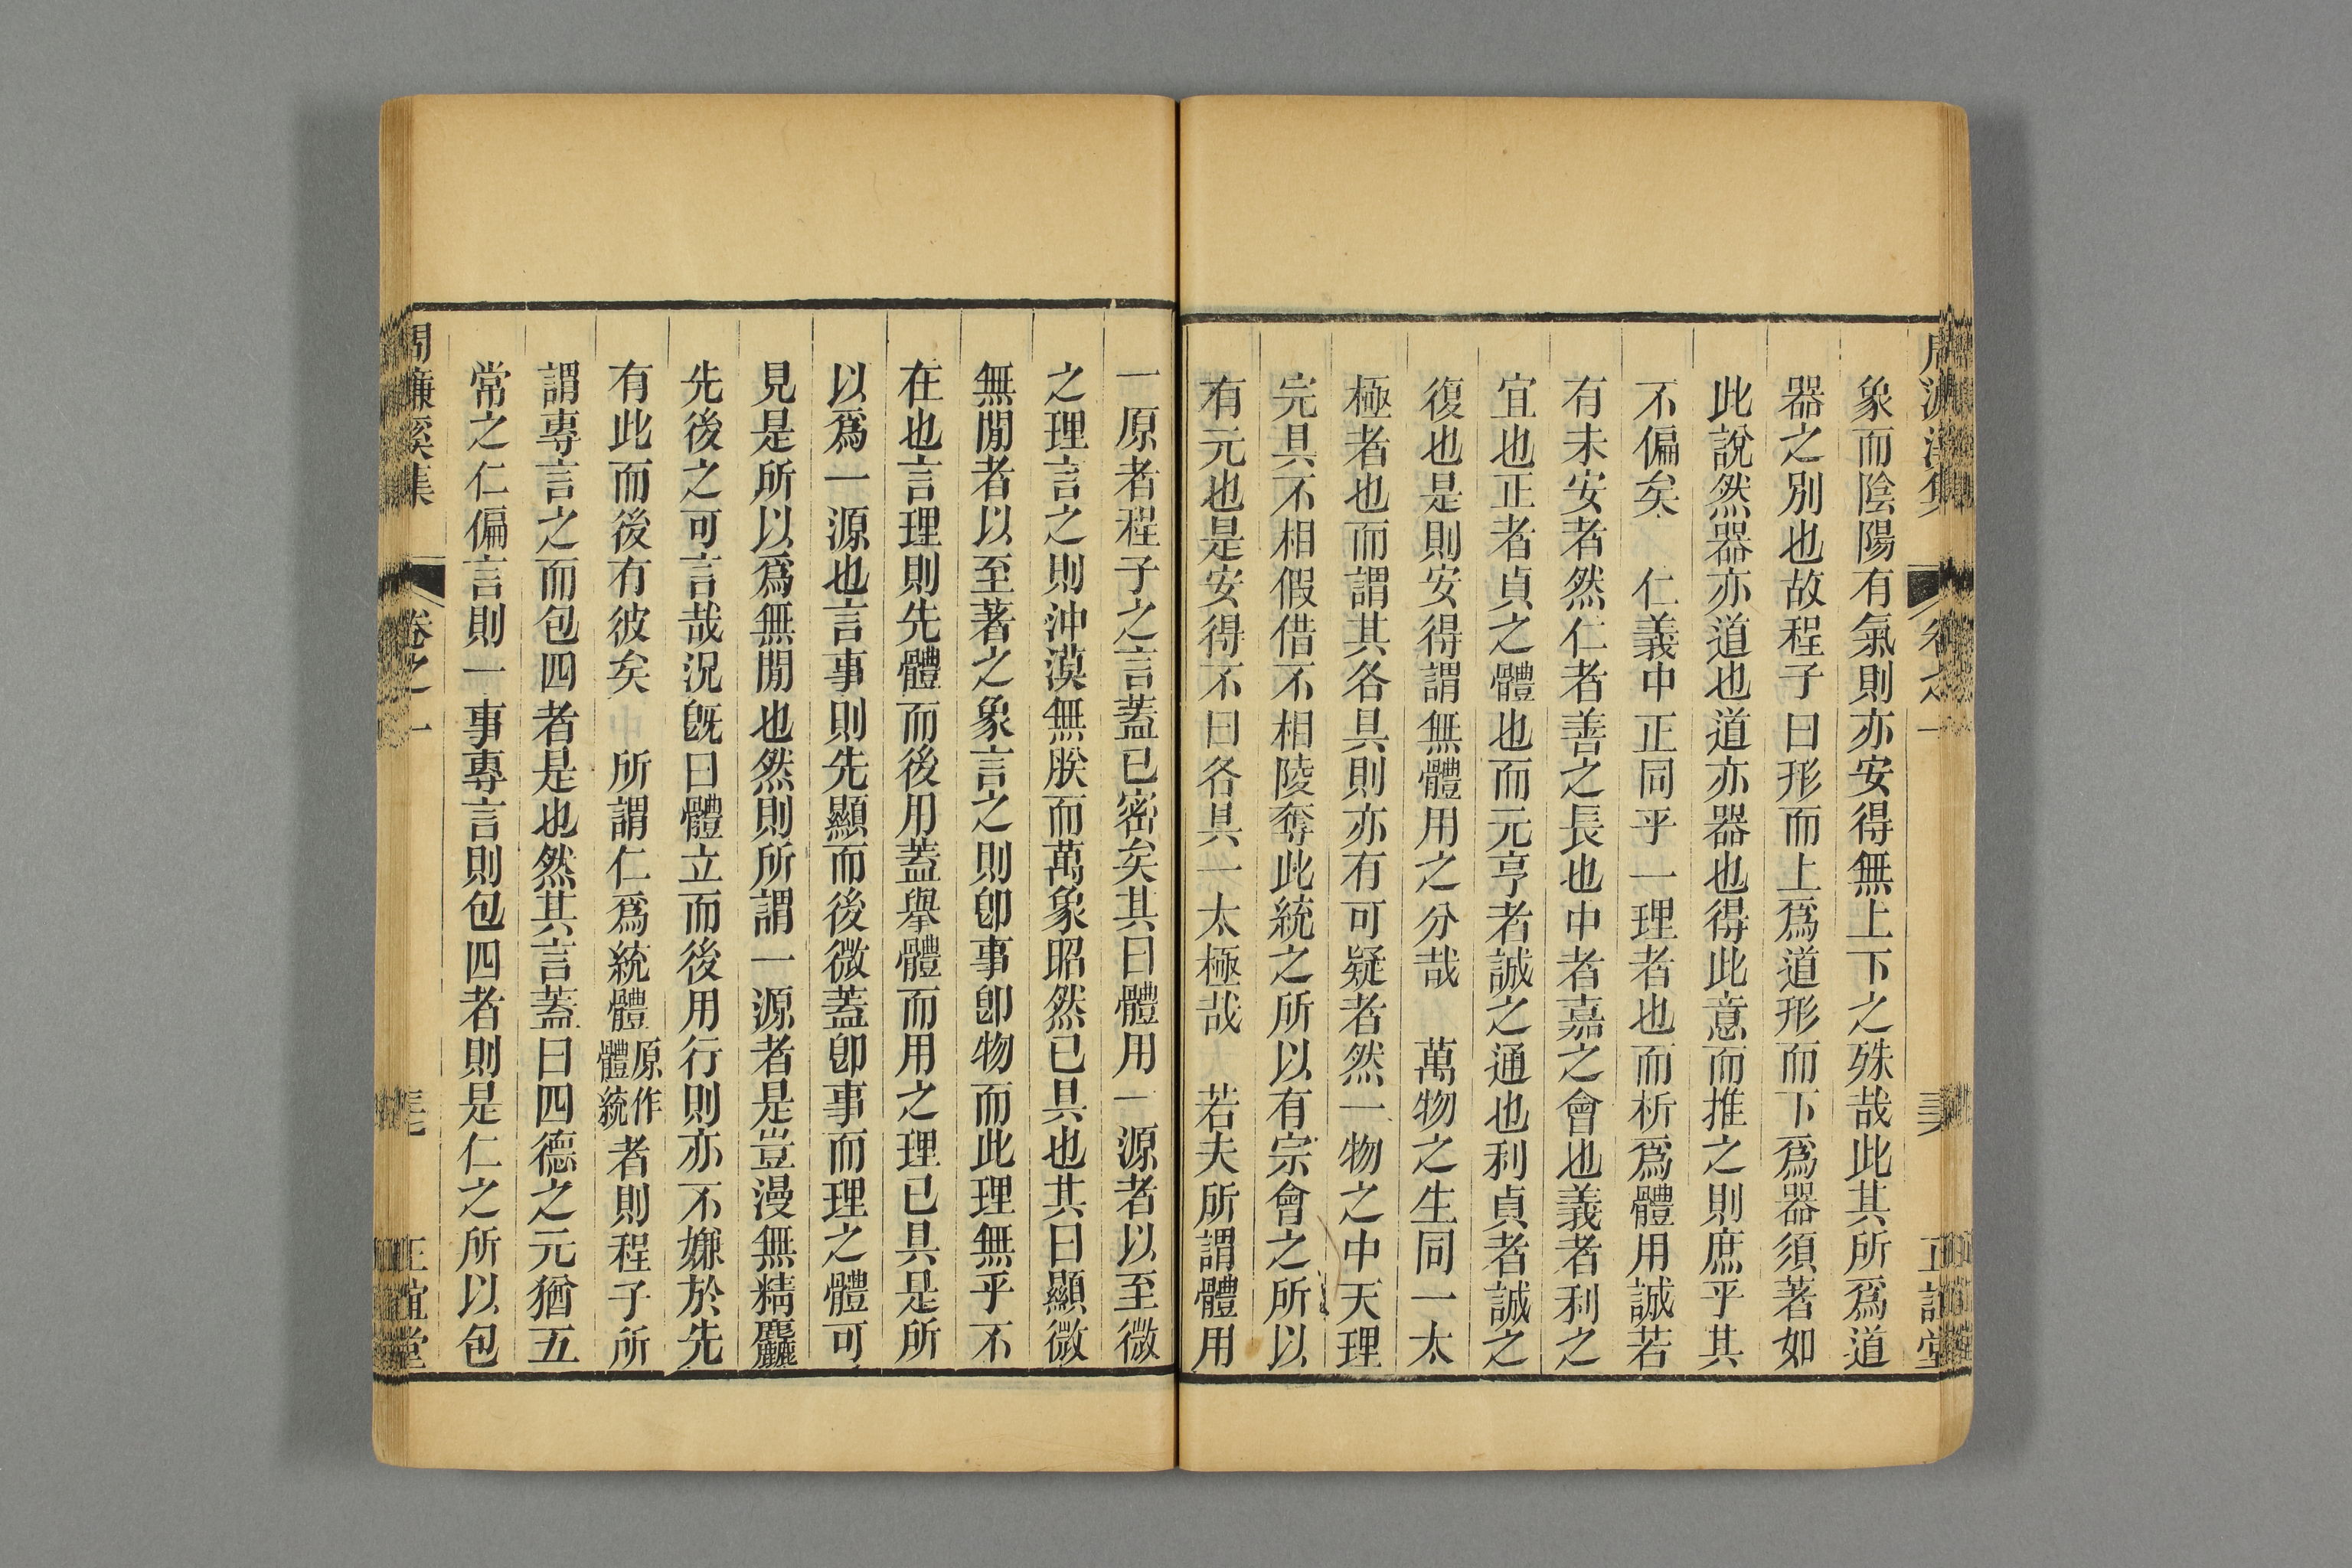 象而陰陽有氣則亦安得無上下之殊哉此其所爲道
器之別也故程子曰形而上爲道形而下爲器須著如
此說然器亦道也道亦器也得此意而推之則庶乎其
不偏矣　仁義中正同乎一理者也而析爲體用誠若
有未安者然仁者善之長也中者嘉之會也義者利之
宜也正者貞之體也而元亨者誠之通也利貞者誠之
復也是則安得謂無體用之分哉　萬物之生同一太
極者也而謂其各具則亦有可疑者然一物之中天理
完具不相假借不相陵奪此統之所以有宗會之所以
有元也是安得不曰各具一太極哉　若夫所謂體用
一原者程子之言蓋已密矣其曰體用一源者以至微
之理言之則沖漠無朕而萬象昭然已具也其曰顯微
無閒者以至著之象言之則卽事卽物而此理無乎不
在也言理則先體而後用蓋舉體而用之理已具是所
以爲一源也言事則先顯而後微蓋卽事而理之體可
見是所以爲無閒也然則所謂一源者是豈漫無精麤
先後之可言哉況旣曰體立而後用行則亦不嫌於先
有此而後有彼矣　所謂仁爲統體原作體統者則程子所
謂專言之而包四者是也然其言蓋曰四德之元猶五
常之仁偏言則一事專言則包四者則是仁之所以包
周濂溪集　卷之一　正誼堂